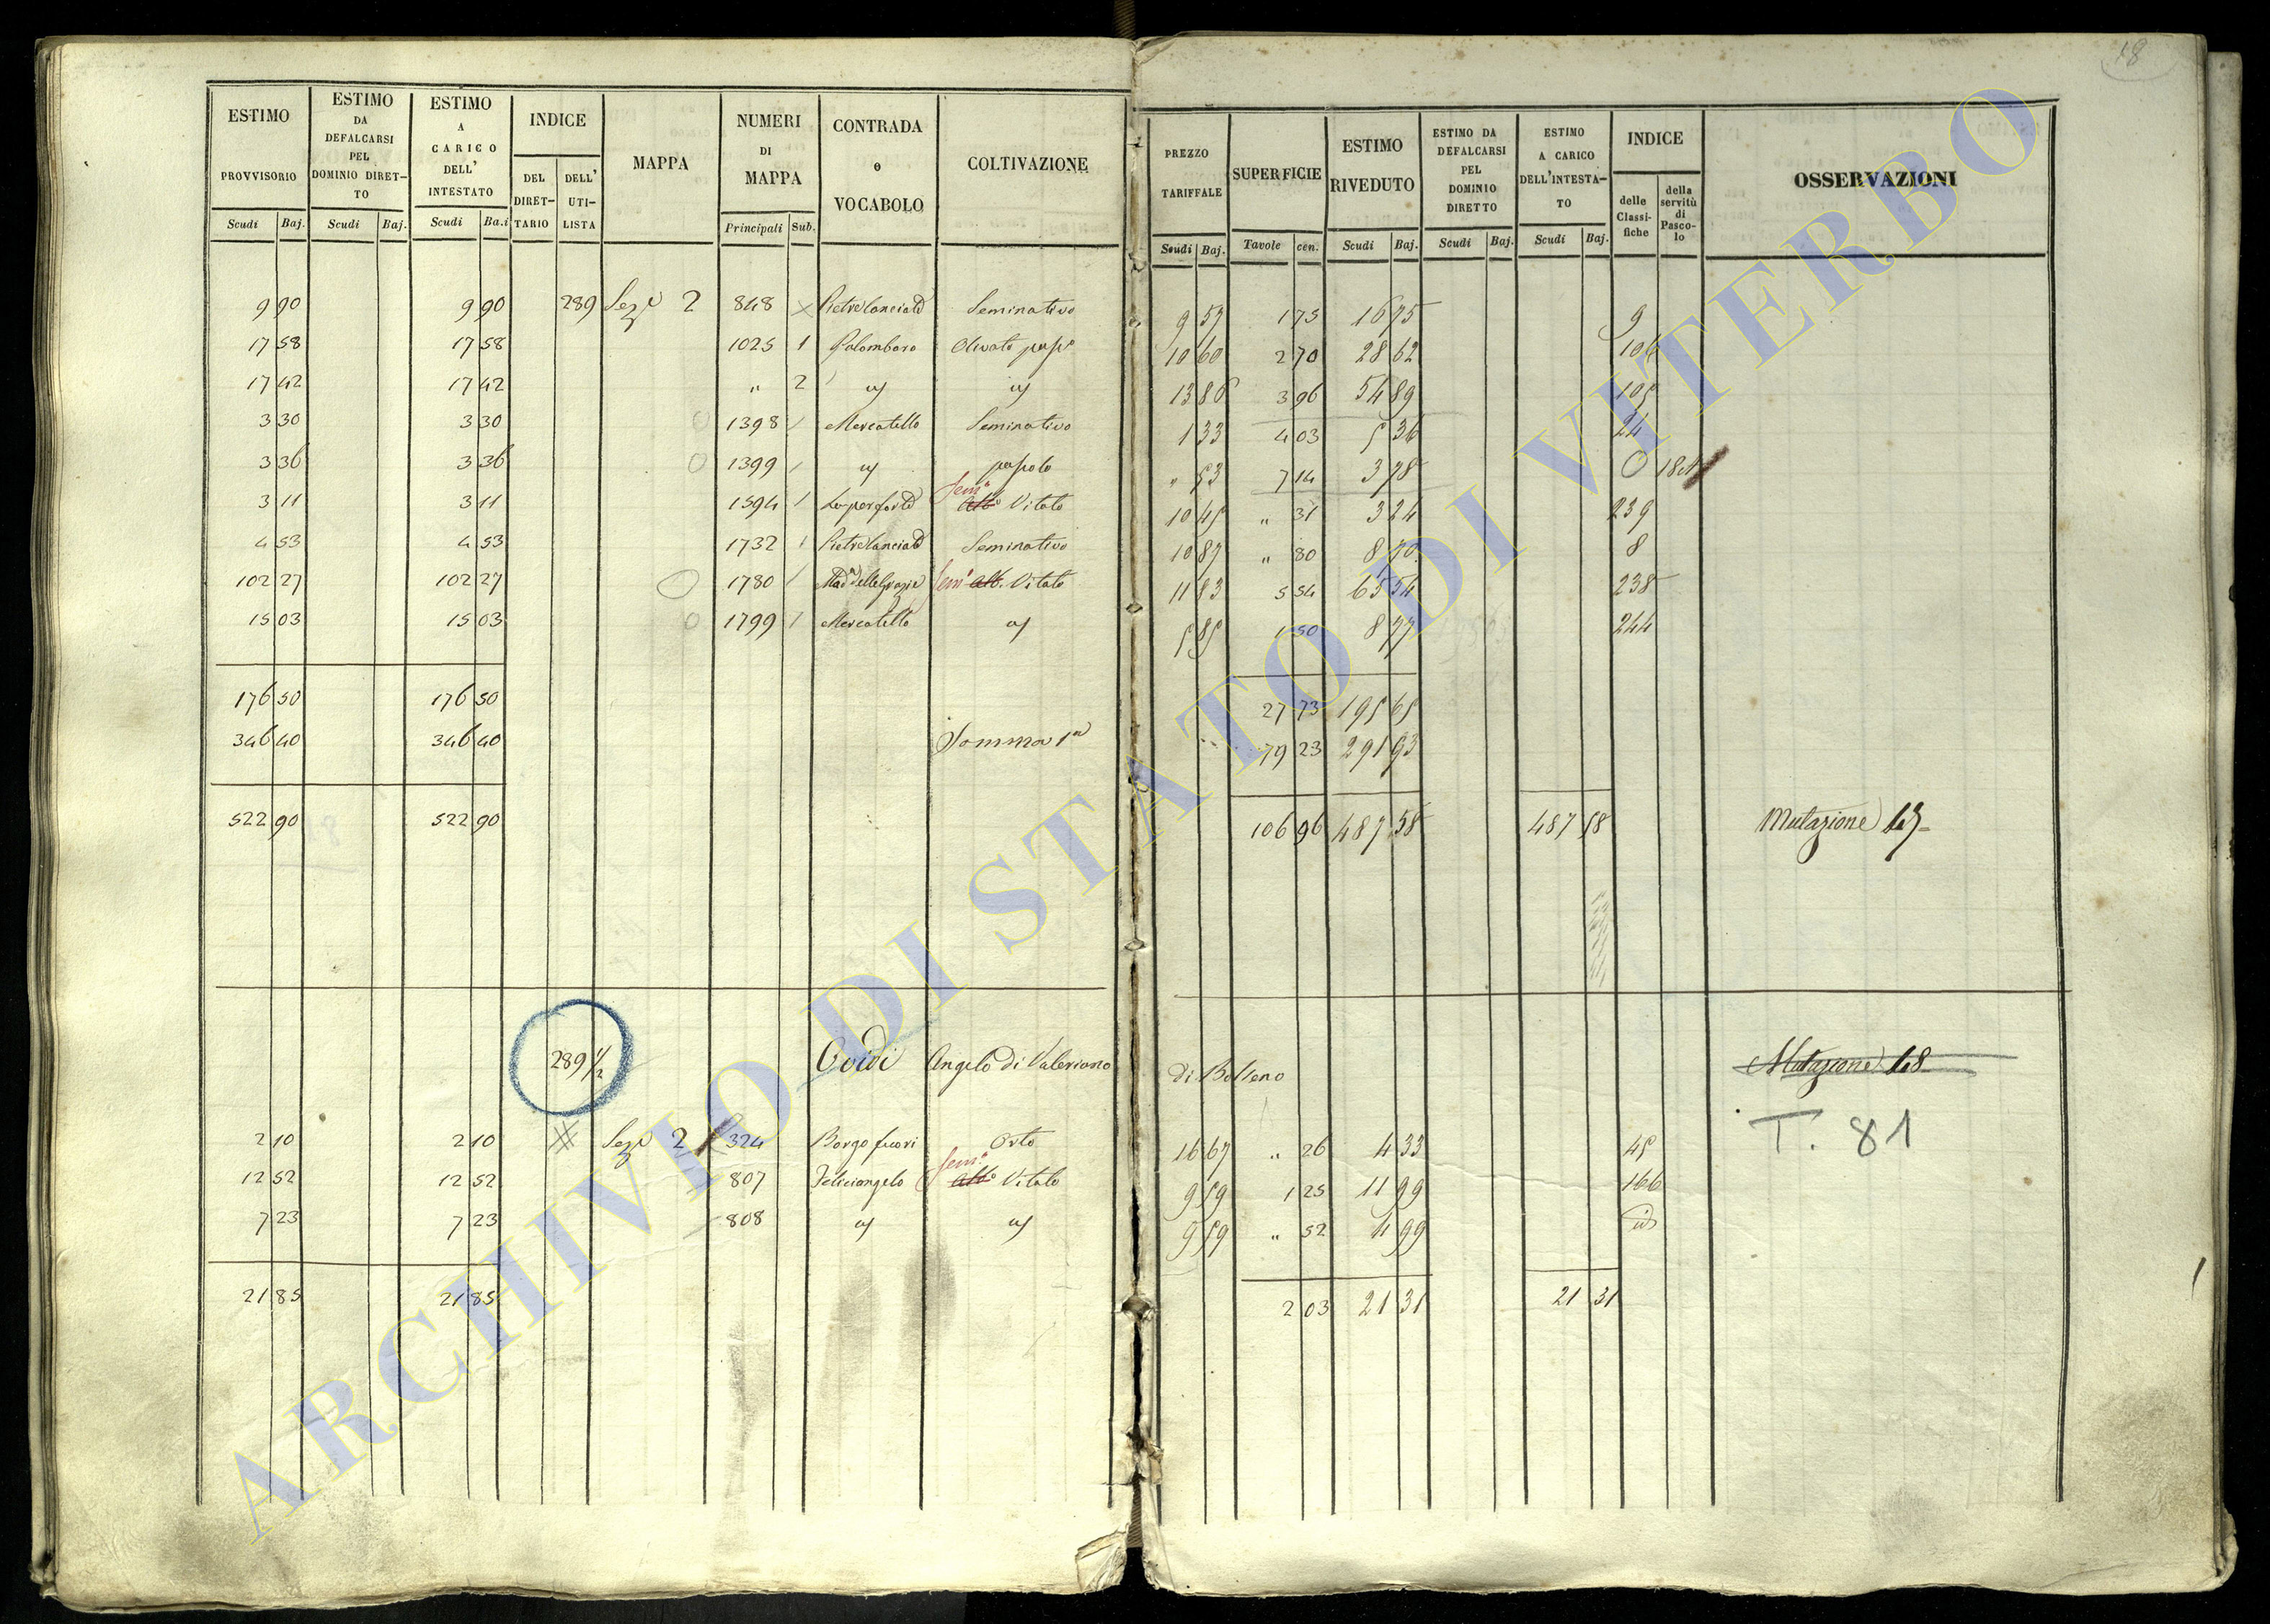 18
ESTIMO PROVVISORIO Scudi Baj.
ESTIMO DA DEFALCARSI PEL DOMINIO DIRETTO Scudi Baj.
ESTIMO A CARICO DELL' INTESTATO Scudi Ba.i
INDICE DEL DIRETTARIO DELL' UTILISTA
MAPPA
NUMERI DI MAPPA Principali Sub.
CONTRADA o VOCABOLO
COLTIVAZIONE
PREZZO TARIFFALE Scudi Baj.
SUPERFICIE Tavole cen.
ESTIMO RIVEDUTO Scudi Baj.
ESTIMO DA DEFALCARSI PEL DOMINIO DIRETTO Scudi Baj.
ESTIMO A CARICO DELL'INTESTATO Scudi Baj.
INDICE delle Classifiche della servitù di Pascolo
OSSERVAZIONI
9 90 9 90 289 Sez.e 2 848 Pietra lanciata Seminativo 9 57 1 75 16 75 9
17 58 17 58 1025 1 Palombaro Olivato pasc.o 10 60 2 70 28 62 106
17 42 17 42 " 2 id id 13 86 3 96 54 89 105
3 30 3 30 1398 Mercatello Seminativo 1 33 4 03 5 36 24
3 36 3 36 1399 id pascolo " 53 7 14 3 78
3 11 3 11 1594 Sem.o Vitato 10 45 " 31 3 24 239
4 53 4 53 1732 Pietra lanciata Seminativo 10 87 " 80 8 70 8
102 27 102 27 1780 Mad.a delle Grazie Sem.o Alb. Vitato 11 83 5 54 65 54 238
15 03 15 03 1799 Mercatello id 5 85 1 50 8 77 244
176 50 176 50 27 73 195 65
346 40 346 40 Somma 1a 79 23 291 93
522 90 522 90 106 96 487 58 487 58 Mutazione
289 1/2 Angelo di Valeriano di Bolseno Mutazione 148
T. 81
2 10 2 10 Sez.e 2 324 Borgo fuori Orto 16 67 " 26 4 33 45
12 52 12 52 807 Feliciangelo Sem.o Alb.o Vitato 9 59 1 25 11 99 166
7 23 7 23 808 id id 9 59 " 52 4 99 id
21 85 21 85 2 03 21 31 21 31
ARCHIVIO DI STATO DI VITERBO